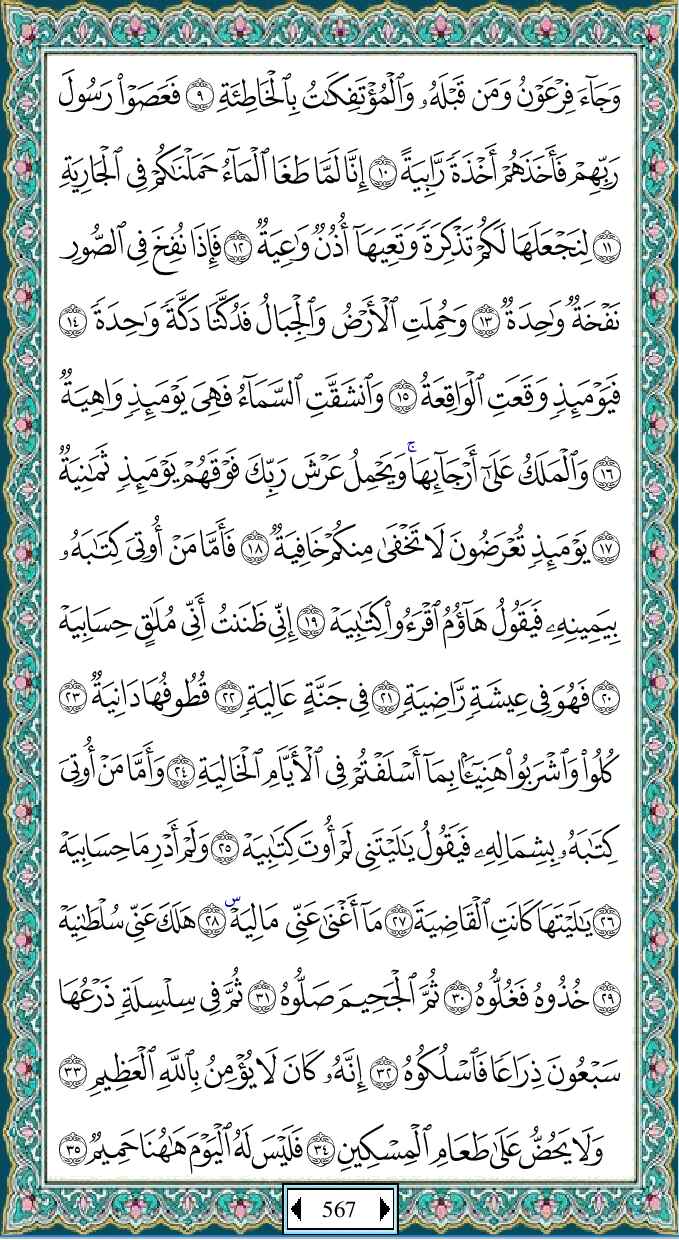 وَجَآءَ فِرۡعَوۡنُ وَمَن قَبۡلَهُۥ وَٱلۡمُؤۡتَفِكَٰتُ بِٱلۡخَاطِئَةِ ٩ فَعَصَوۡاْ رَسُولَ
رَبِّهِمۡ فَأَخَذَهُمۡ أَخۡذَةٗ رَّابِيَةً ١٠ إِنَّا لَمَّا طَغَا ٱلۡمَآءُ حَمَلۡنَٰكُمۡ فِي ٱلۡجَارِيَةِ
١١ لِنَجۡعَلَهَا لَكُمۡ تَذۡكِرَةٗ وَتَعِيَهَآ أُذُنٞ وَٰعِيَةٞ ١٢ فَإِذَا نُفِخَ فِي ٱلصُّورِ
نَفۡخَةٞ وَٰحِدَةٞ ١٣ وَحُمِلَتِ ٱلۡأَرۡضُ وَٱلۡجِبَالُ فَدُكَّتَا دَكَّةٗ وَٰحِدَةٗ ١٤
فَيَوۡمَئِذٖ وَقَعَتِ ٱلۡوَاقِعَةُ ١٥ وَٱنشَقَّتِ ٱلسَّمَآءُ فَهِيَ يَوۡمَئِذٖ وَاهِيَةٞ
١٦ وَٱلۡمَلَكُ عَلَىٰٓ أَرۡجَآئِهَاۚ وَيَحۡمِلُ عَرۡشَ رَبِّكَ فَوۡقَهُمۡ يَوۡمَئِذٖ ثَمَٰنِيَةٞ
١٧ يَوۡمَئِذٖ تُعۡرَضُونَ لَا تَخۡفَىٰ مِنكُمۡ خَافِيَةٞ ١٨ فَأَمَّا مَنۡ أُوتِيَ كِتَٰبَهُۥ
بِيَمِينِهِۦ فَيَقُولُ هَآؤُمُ ٱقۡرَءُواْ كِتَٰبِيَهۡ ١٩ إِنِّي ظَنَنتُ أَنِّي مُلَٰقٍ حِسَابِيَهۡ
٢٠ فَهُوَ فِي عِيشَةٖ رَّاضِيَةٖ ٢١ فِي جَنَّةٍ عَالِيَةٖ ٢٢ قُطُوفُهَا دَانِيَةٞ ٢٣
كُلُواْ وَٱشۡرَبُواْ هَنِيٓـَٔۢا بِمَآ أَسۡلَفۡتُمۡ فِي ٱلۡأَيَّامِ ٱلۡخَالِيَةِ ٢٤ وَأَمَّا مَنۡ أُوتِيَ
كِتَٰبَهُۥ بِشِمَالِهِۦ فَيَقُولُ يَٰلَيۡتَنِي لَمۡ أُوتَ كِتَٰبِيَهۡ ٢٥ وَلَمۡ أَدۡرِ مَا حِسَابِيَهۡ
٢٦ يَٰلَيۡتَهَا كَانَتِ ٱلۡقَاضِيَةَ ٢٧ مَآ أَغۡنَىٰ عَنِّي مَالِيَهۡۜ ٢٨ هَلَكَ عَنِّي سُلۡطَٰنِيَهۡ
٢٩ خُذُوهُ فَغُلُّوهُ ٣٠ ثُمَّ ٱلۡجَحِيمَ صَلُّوهُ ٣١ ثُمَّ فِي سِلۡسِلَةٖ ذَرۡعُهَا
سَبۡعُونَ ذِرَاعٗا فَٱسۡلُكُوهُ ٣٢ إِنَّهُۥ كَانَ لَا يُؤۡمِنُ بِٱللَّهِ ٱلۡعَظِيمِ ٣٣
وَلَا يَحُضُّ عَلَىٰ طَعَامِ ٱلۡمِسۡكِينِ ٣٤ فَلَيۡسَ لَهُ ٱلۡيَوۡمَ هَٰهُنَا حَمِيمٞ ٣٥
567